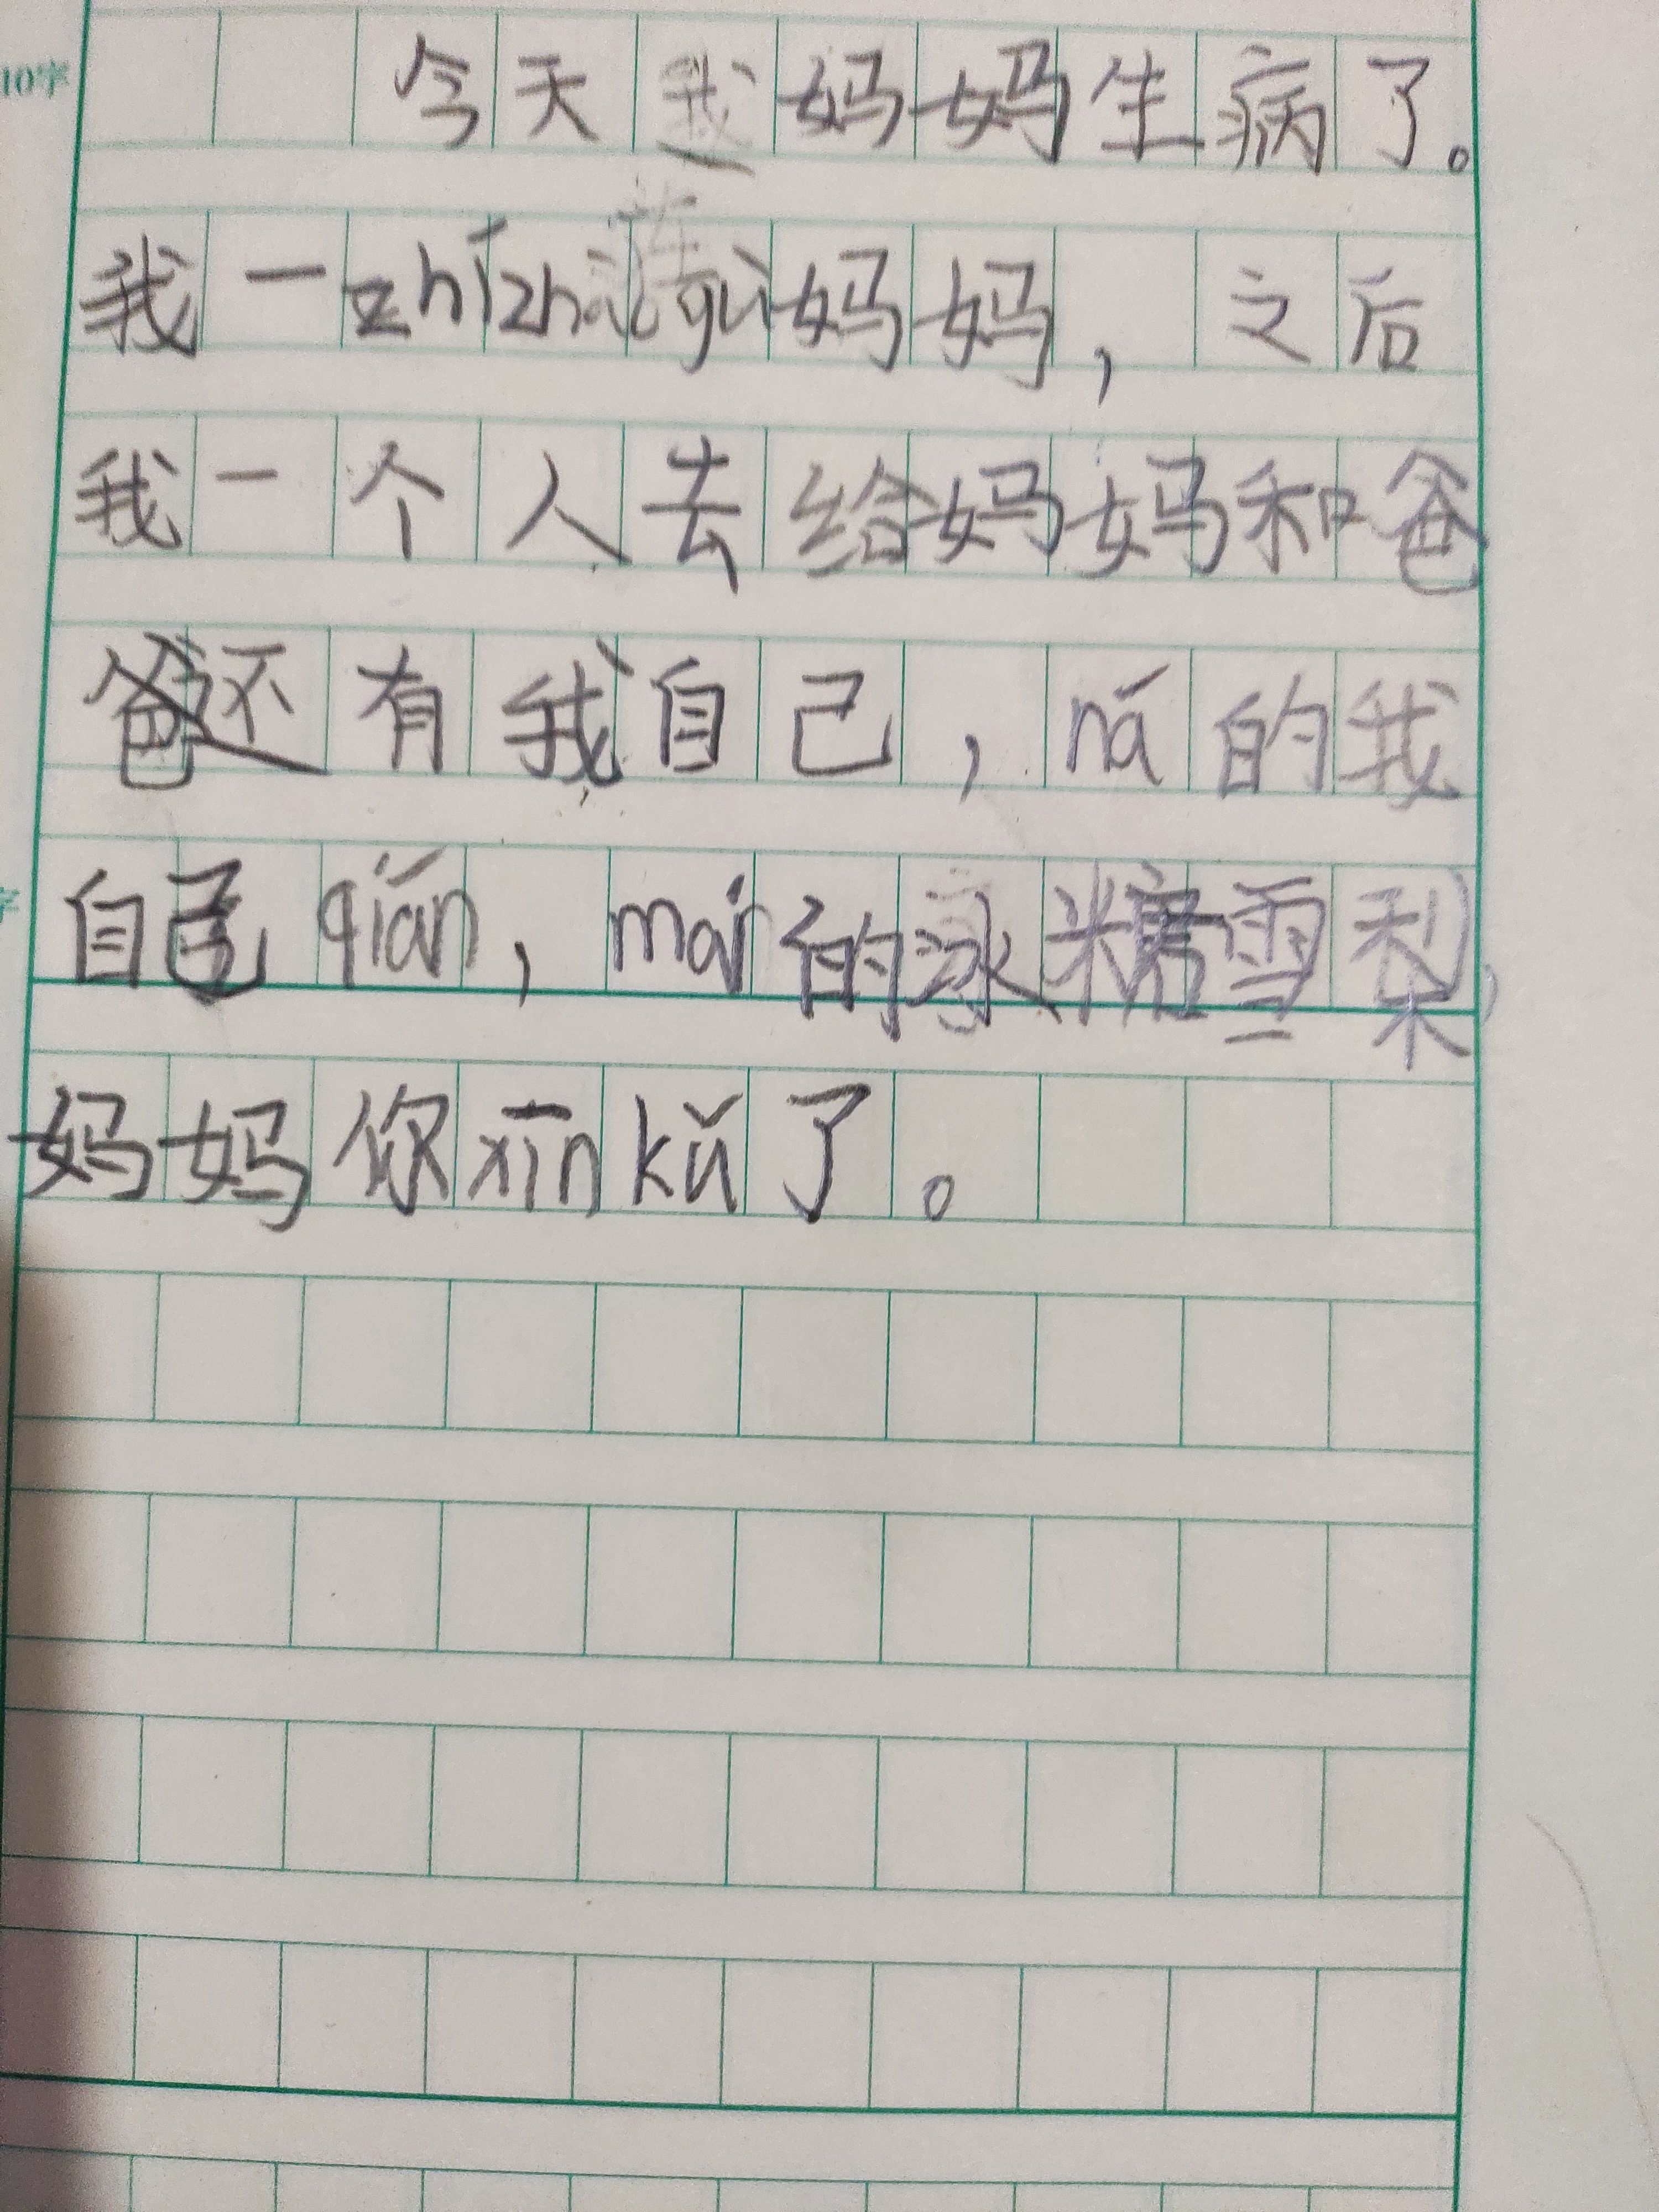 10字
今天我妈妈生病了。
我一zhīzhào gù妈妈，之后
我一个人去给妈妈和爸
爸还有我自己，ná的我
自己qián，mǎi的冰糖雪梨，
妈妈你xīn kǔ了。